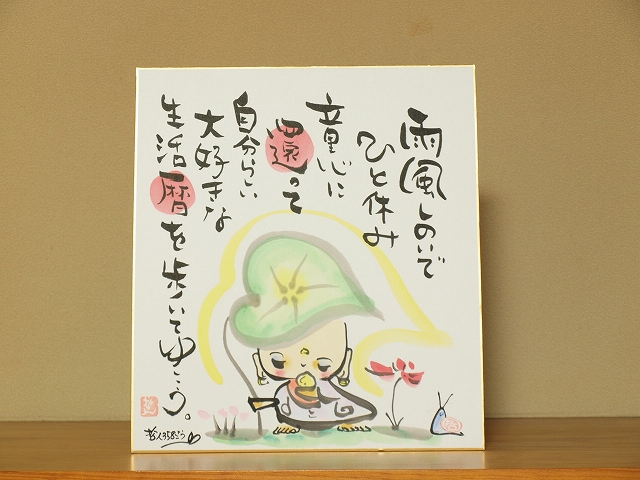 雨風しのいで
ひと休み
童心に
還って
自分らしい
大好きな
生活暦を歩いてゆこう。